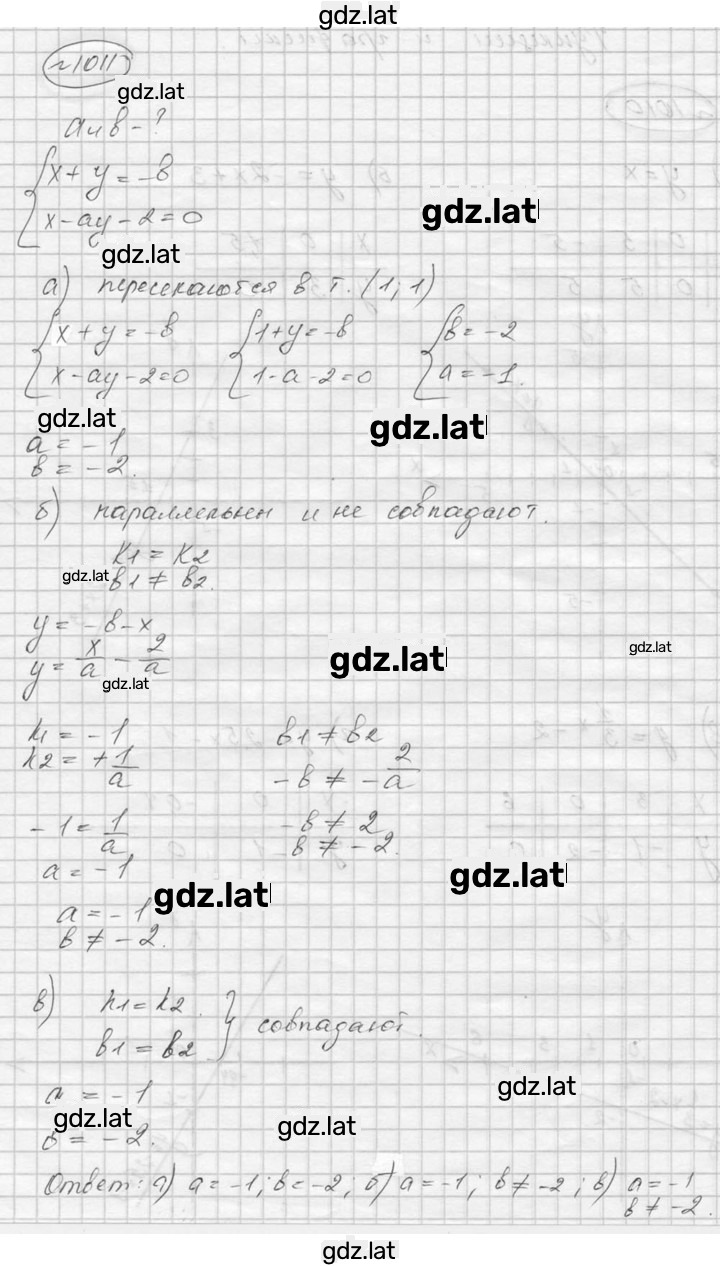 gdz.lat
№1011
gdz.lat
а и в - ?
x + y = -в
gdz.lat
x - ay - 2 = 0
gdz.lat
а) пересекаются в т. (1; 1)
x + y = -в 1 + y = -в в = -2
x - ay - 2 = 0 1 - a - 2 = 0 a = -1.
gdz.lat gdz.lat
a = -1
в = -2.
б) параллельны и не совпадают.
k1 = k2
gdz.lat в1 ≠ в2.
y = -в - x
y = x/a - 2/a
gdz.lat gdz.lat
gdz.lat
k1 = -1 в1 ≠ в2
k2 = +1/a -в ≠ -2/a
-1 = 1/a -в ≠ 2
a = -1 в ≠ -2.
gdz.lat gdz.lat
a = -1
в ≠ -2.
в) k1 = k2
в1 = в2 } совпадают.
a = -1 gdz.lat
gdz.lat gdz.lat
в = -2.
Ответ: а) a = -1; в = -2; б) a = -1; в ≠ -2; в) a = -1
в ≠ -2.
gdz.lat